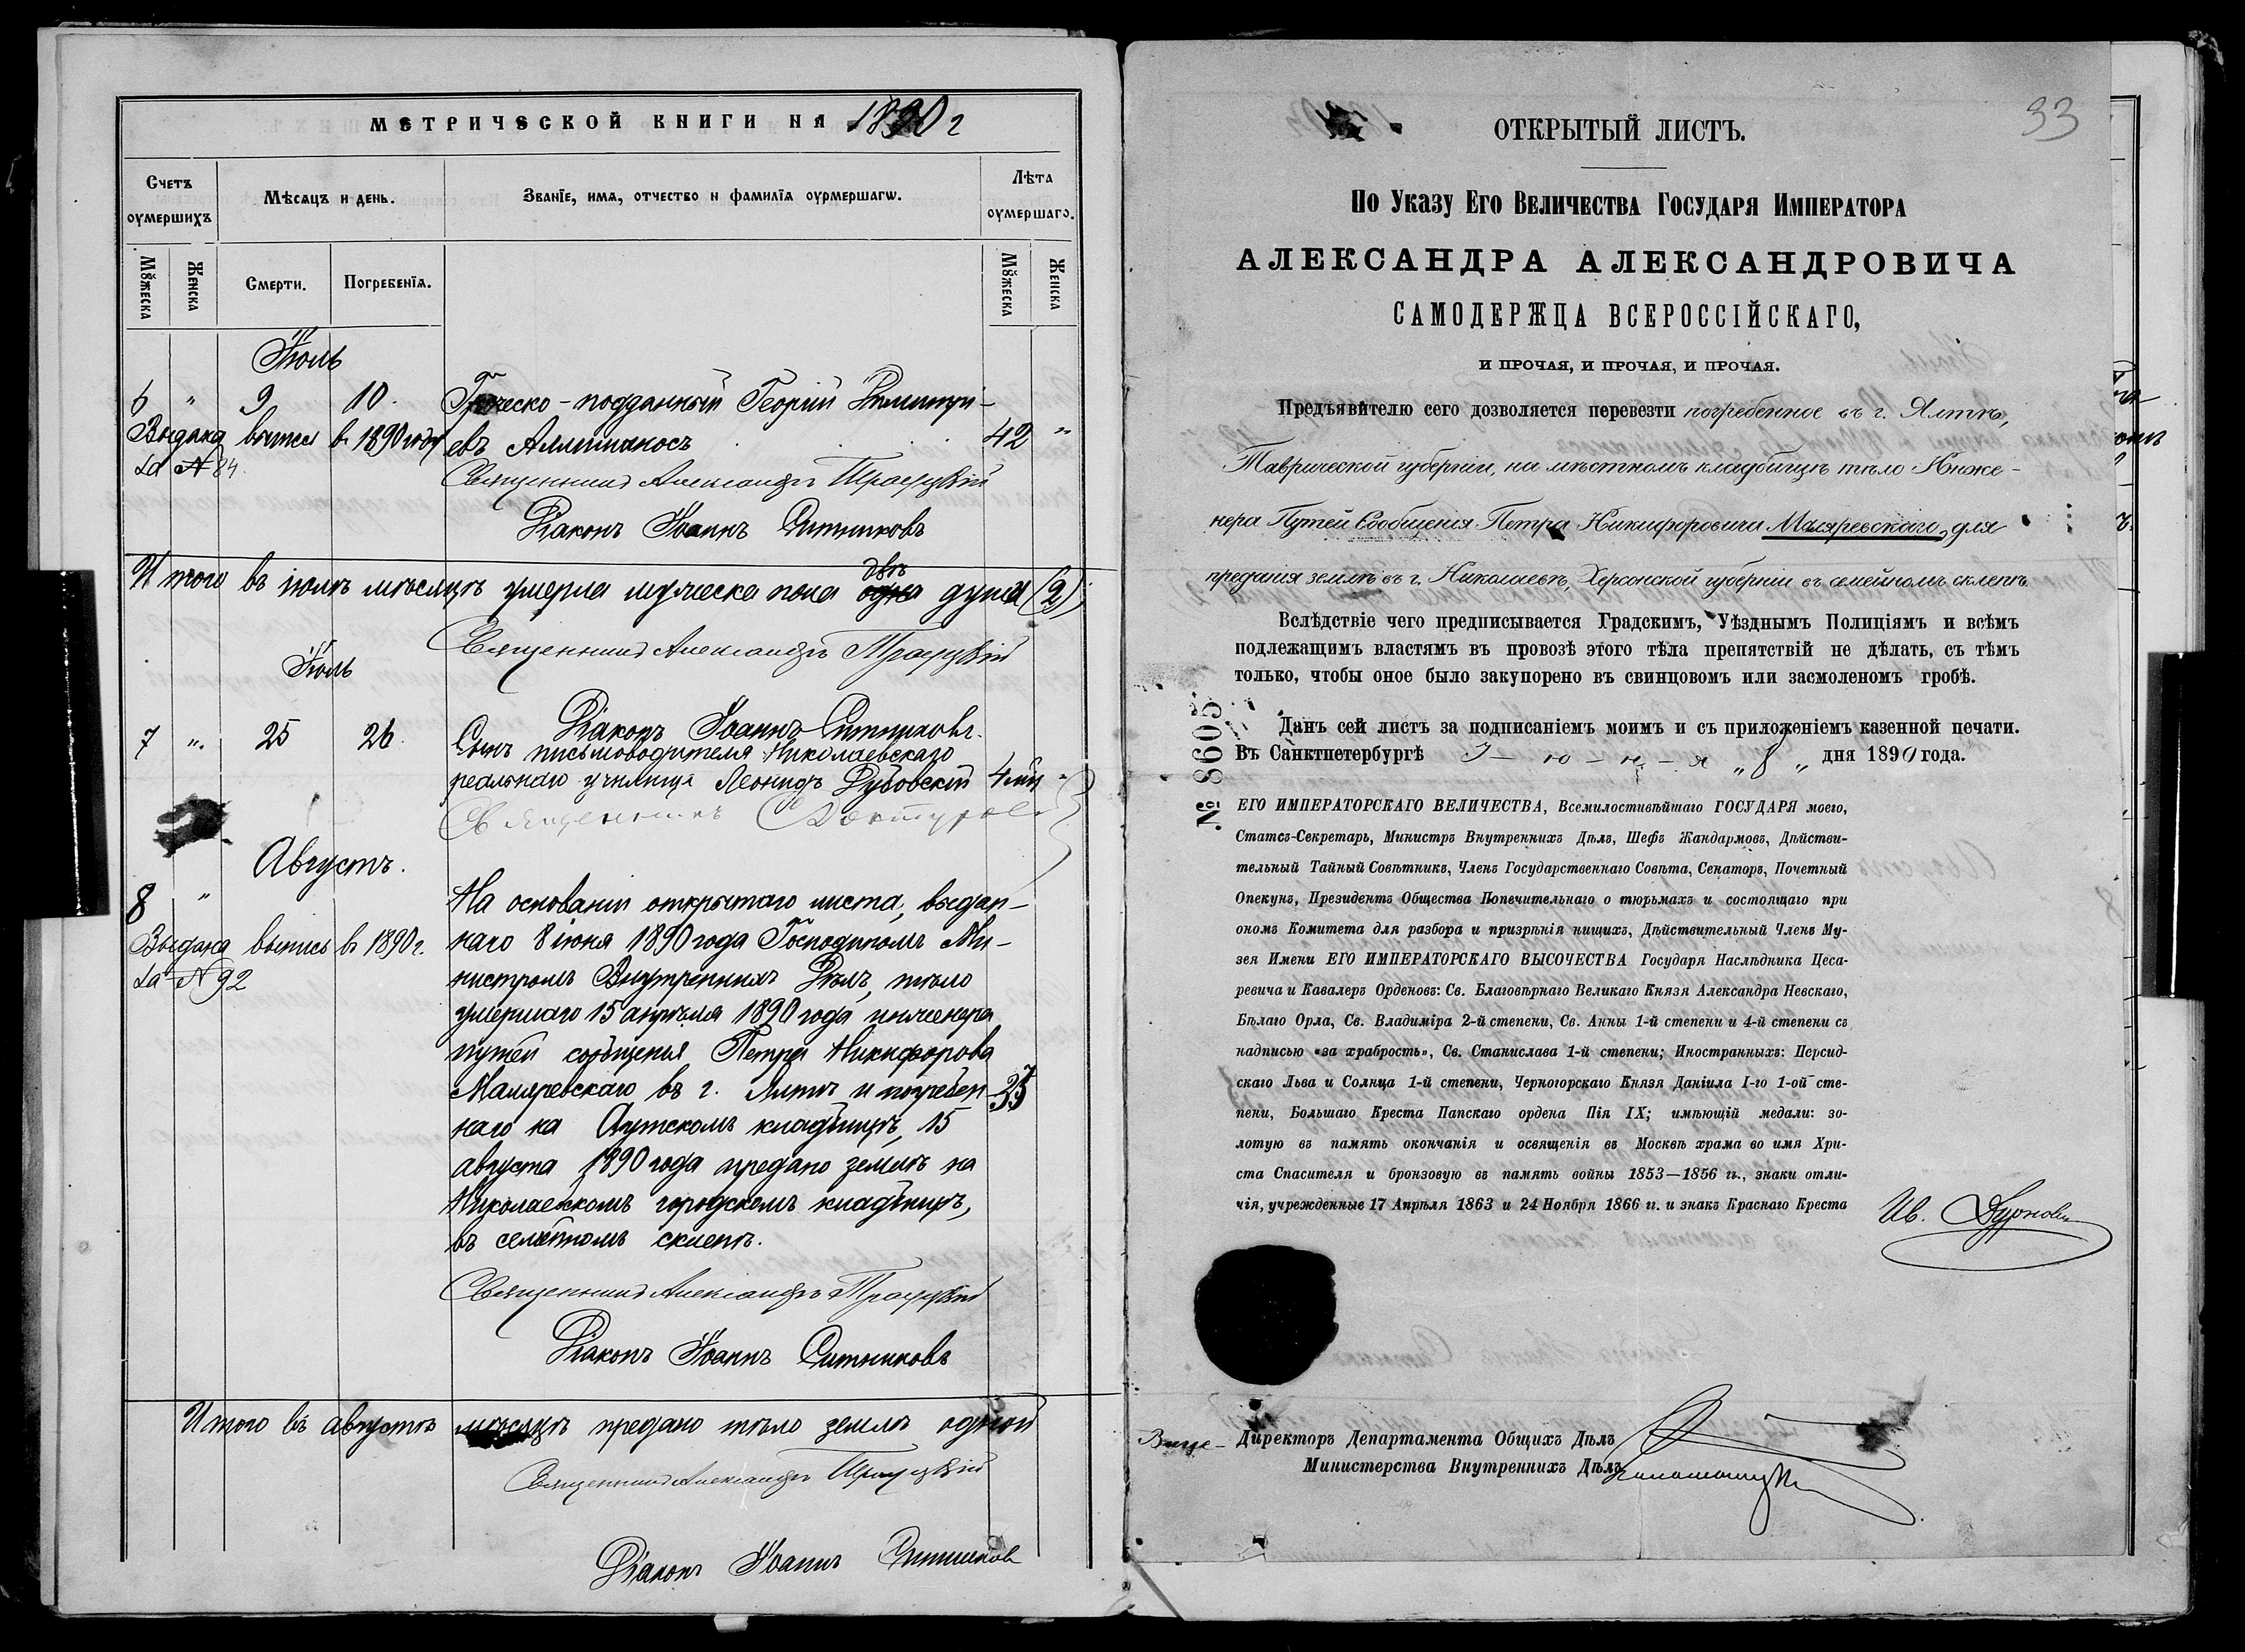 МЕТРИЧЕСКОЙ КНИГИ НА 1890 г
Счетъ оумершихъ
Мѣсяцъ и день.
Званїе, имя, отчество и фамилїя оурмершагѡ.
Лѣта оумершаго.
Мꙋжеска
Женска
Смерти.
Погребенїя.
Мꙋжеска
Женска
Іюль
6 " 9 10. Греческо-подданный Георгій Димитрі-
Выдана выпись въ 1890 году евъ 42 "
за № 84.
Священникъ Александръ
Діаконъ Іоаннъ Ситниковъ
Итого въ іюлѣ мѣсяцѣ умерла мужеска пола одна двѣ душа (2)
Священникъ Александръ
Іюль
Діаконъ Іоаннъ Ситниковъ.
7 ". 25 26. Сынъ письмоводителя Николаевскаго
реальнаго училища Леонидъ Дубовскій 4
Священникъ
Августъ.
8 " На основаніи открытаго листа, выдан-
Выдана выпись въ 1890 г. наго 8 іюня 1890 года Господиномъ Ми-
за № 92 нистромъ Внутреннихъ Дѣлъ, тѣло
умершаго 15 апрѣля 1890 года инженера
путей сообщенья Петра Никифорова
Маляревскаго въ г. Ялтѣ и погребен-
наго на Аутскомъ кладбищѣ, 15
августа 1890 года предано землѣ на
Николаевскомъ городскомъ кладбищѣ,
въ семейномъ склепѣ.
Священникъ Александръ
Діаконъ Іоаннъ Ситниковъ
Итого въ августѣ мѣсяцѣ предано тѣло землѣ одной
Священникъ Александръ
Діаконъ Іоаннъ Ситниковъ
33
ОТКРЫТЫЙ ЛИСТЪ.
По Указу Его Величества Государя Императора
АЛЕКСАНДРА АЛЕКСАНДРОВИЧА
САМОДЕРЖЦА ВСЕРОССІЙСКАГО,
И ПРОЧАЯ, И ПРОЧАЯ, И ПРОЧАЯ.
Предъявителю сего дозволяется перевезти погребенное въ г. Ялтѣ,
Таврической губерніи, на мѣстномъ кладбищѣ тѣло Инже-
нера Путей Сообщенія Петра Никифоровича Маляревскаго, для
преданія землѣ въ г. Николаевѣ, Херсонской губерніи въ семейномъ склепѣ.
Вслѣдствіе чего предписывается Градскимъ, Уѣзднымъ Полиціямъ и всѣмъ
подлежащимъ властямъ въ провозѣ этого тѣла препятствій не дѣлать, съ тѣмъ
только, чтобы оное было закупорено въ свинцовомъ или засмоленомъ гробѣ.
Данъ сей листъ за подписаніемъ моимъ и съ приложеніемъ казенной печати.
Въ Санктпетербургѣ І-ю-н-я „8„ дня 1890 года.
№ 8605
ЕГО ИМПЕРАТОРСКАГО ВЕЛИЧЕСТВА, Всемилостивѣйшаго ГОСУДАРЯ моего,
Статсъ-Секретарь, Министръ Внутреннихъ Дѣлъ, Шефъ Жандармовъ, Дѣйстви-
тельный Тайный Совѣтникъ, Членъ Государственнаго Совѣта, Сенаторъ, Почетный
Опекунъ, Президентъ Общества Попечительнаго о тюрьмахъ и состоящаго при
ономъ Комитета для разбора и призрѣнія нищихъ, Дѣйствительный Членъ Му-
зея Имени ЕГО ИМПЕРАТОРСКАГО ВЫСОЧЕСТВА Государя Наслѣдника Цеса-
ревича и Кавалеръ Орденовъ: Св. Благовѣрнаго Великаго Князя Александра Невскаго,
Бѣлаго Орла, Св. Владиміра 2-й степени, Св. Анны 1-й степени и 4-й степени съ
надписью «за храбрость», Св. Станислава 1-й степени; Иностранныхъ: Персид-
скаго Льва и Солнца 1-й степени, Черногорскаго Князя Даніила I-го 1-ой сте-
пени, Большаго Креста Папскаго ордена Пія IX; имѣющій медали: зо-
лотую въ память окончанія и освященія въ Москвѣ храма во имя Хри-
ста Спасителя и бронзовую въ память войны 1853—1856 гг., знаки отли-
чія, учрежденные 17 Апрѣля 1863 и 24 Ноября 1866 гг. и знакъ Краснаго Креста
Ив. Дурново
Вице-Директоръ Департамента Общихъ Дѣлъ
Министерства Внутреннихъ Дѣлъ